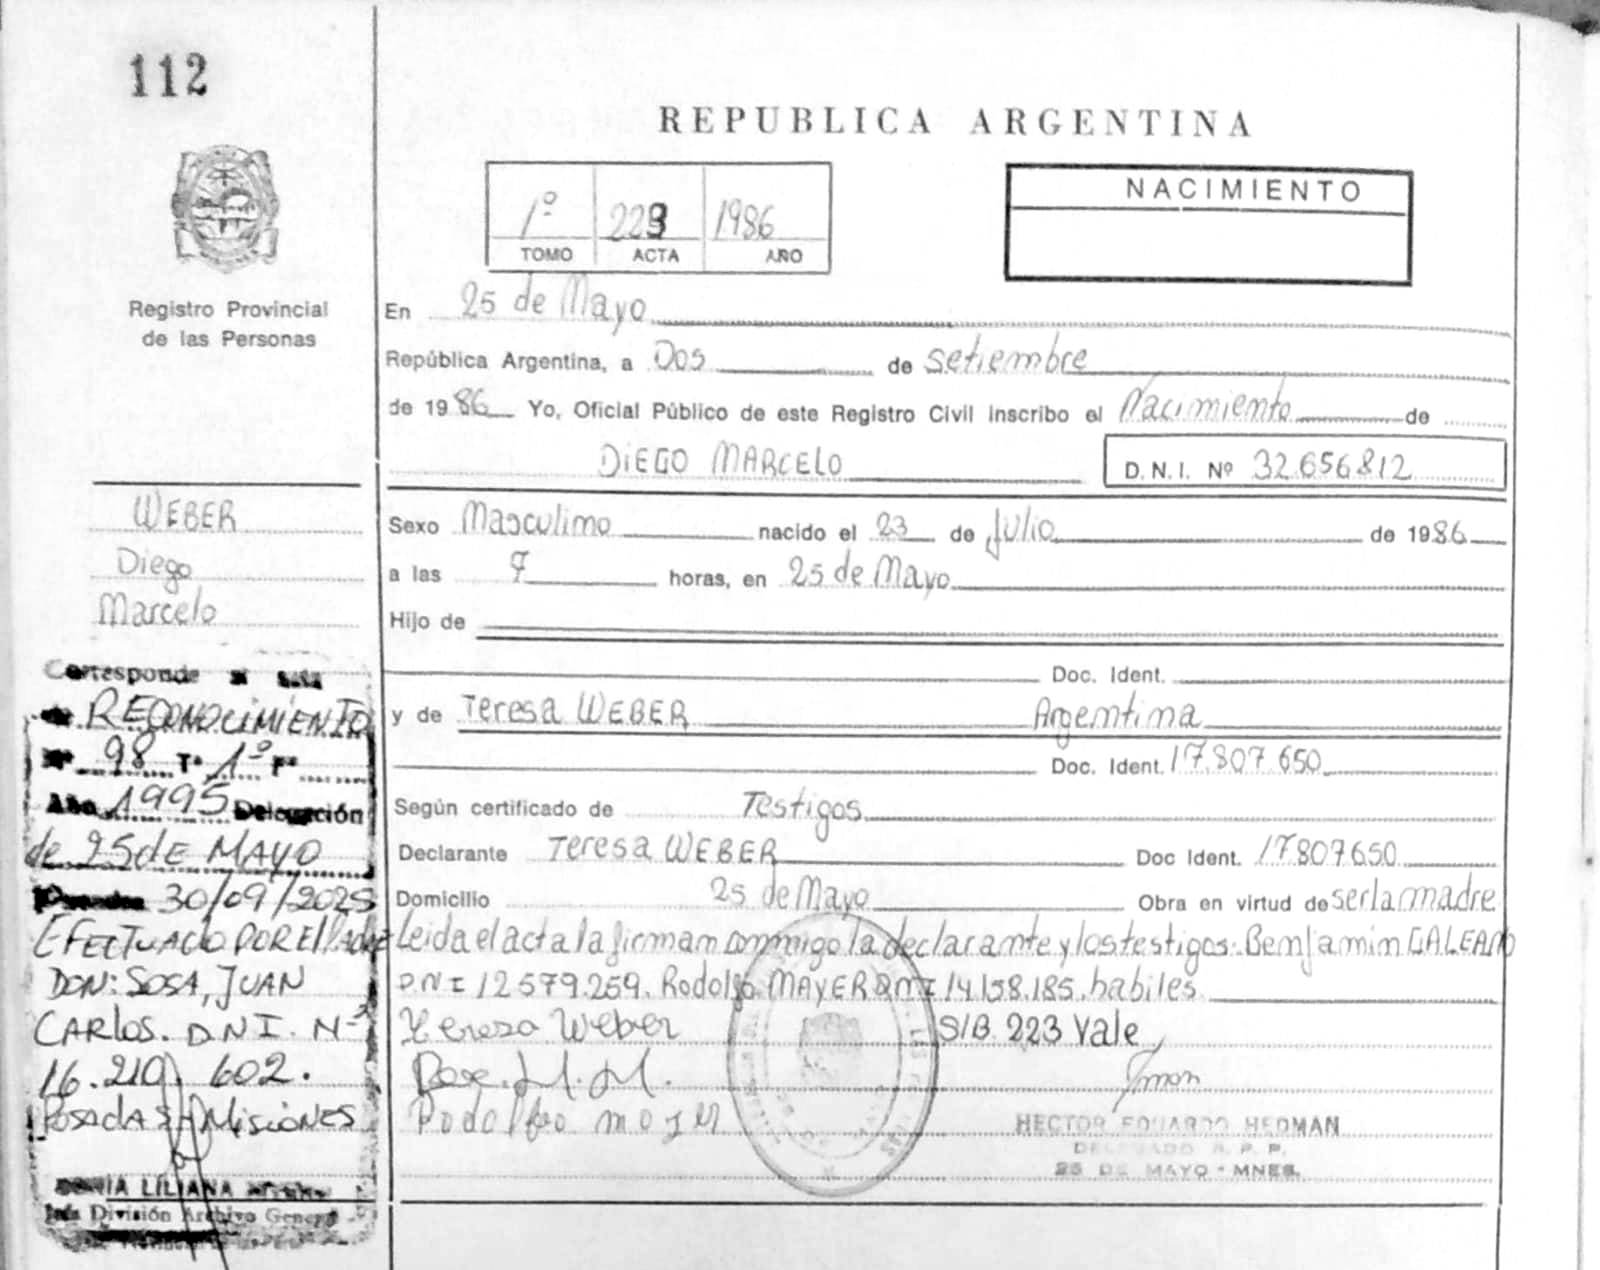 112
REPUBLICA ARGENTINA
1º 223 1986
TOMO ACTA AÑO
NACIMIENTO
Registro Provincial
de las Personas
En 25 de Mayo
República Argentina, a Dos de setiembre
de 1986 Yo, Oficial Público de este Registro Civil inscribo el Nacimiento de
DIEGO MARCELO D.N.I. Nº 32.656.812
WEBER
Diego
Marcelo
Sexo Masculino nacido el 23 de Julio de 1986
a las 7 horas, en 25 de Mayo
Hijo de
Doc. Ident.
y de Teresa WEBER Argentina
Doc. Ident. 17.807.650
Según certificado de Testigos
Declarante Teresa WEBER Doc Ident. 17.807.650
Domicilio 25 de Mayo Obra en virtud de ser la madre
Leida el acta la firman conmigo la declarante y los testigos: Benjamin GALEANO
DNI 12.579.259. Rodolfo MAYER DNI 14.158.185. habiles
Teresa Weber S/B. 223 Vale
Rodolfo
HECTOR EDUARDO HEDMAN
DELEGADO R. P. P.
25 DE MAYO - MNES.
Corresponde
RECONOCIMIENTO
Nº 98 Tº 1º Fº
Año 1995 Delegación
de 25 de MAYO
Posadas 30/09/2025
EFECTUADO POR El Padre
DON: SOSA, JUAN
CARLOS. DNI. Nº
16.210.602.
Posadas Misiones
LILIANA
Jefa División Archivo General